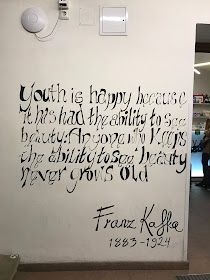 Youth is happy because
it has had the ability to see
beauty. Anyone who keeps
the ability to see beauty
never grows old
Franz Kafka
1883-1924.